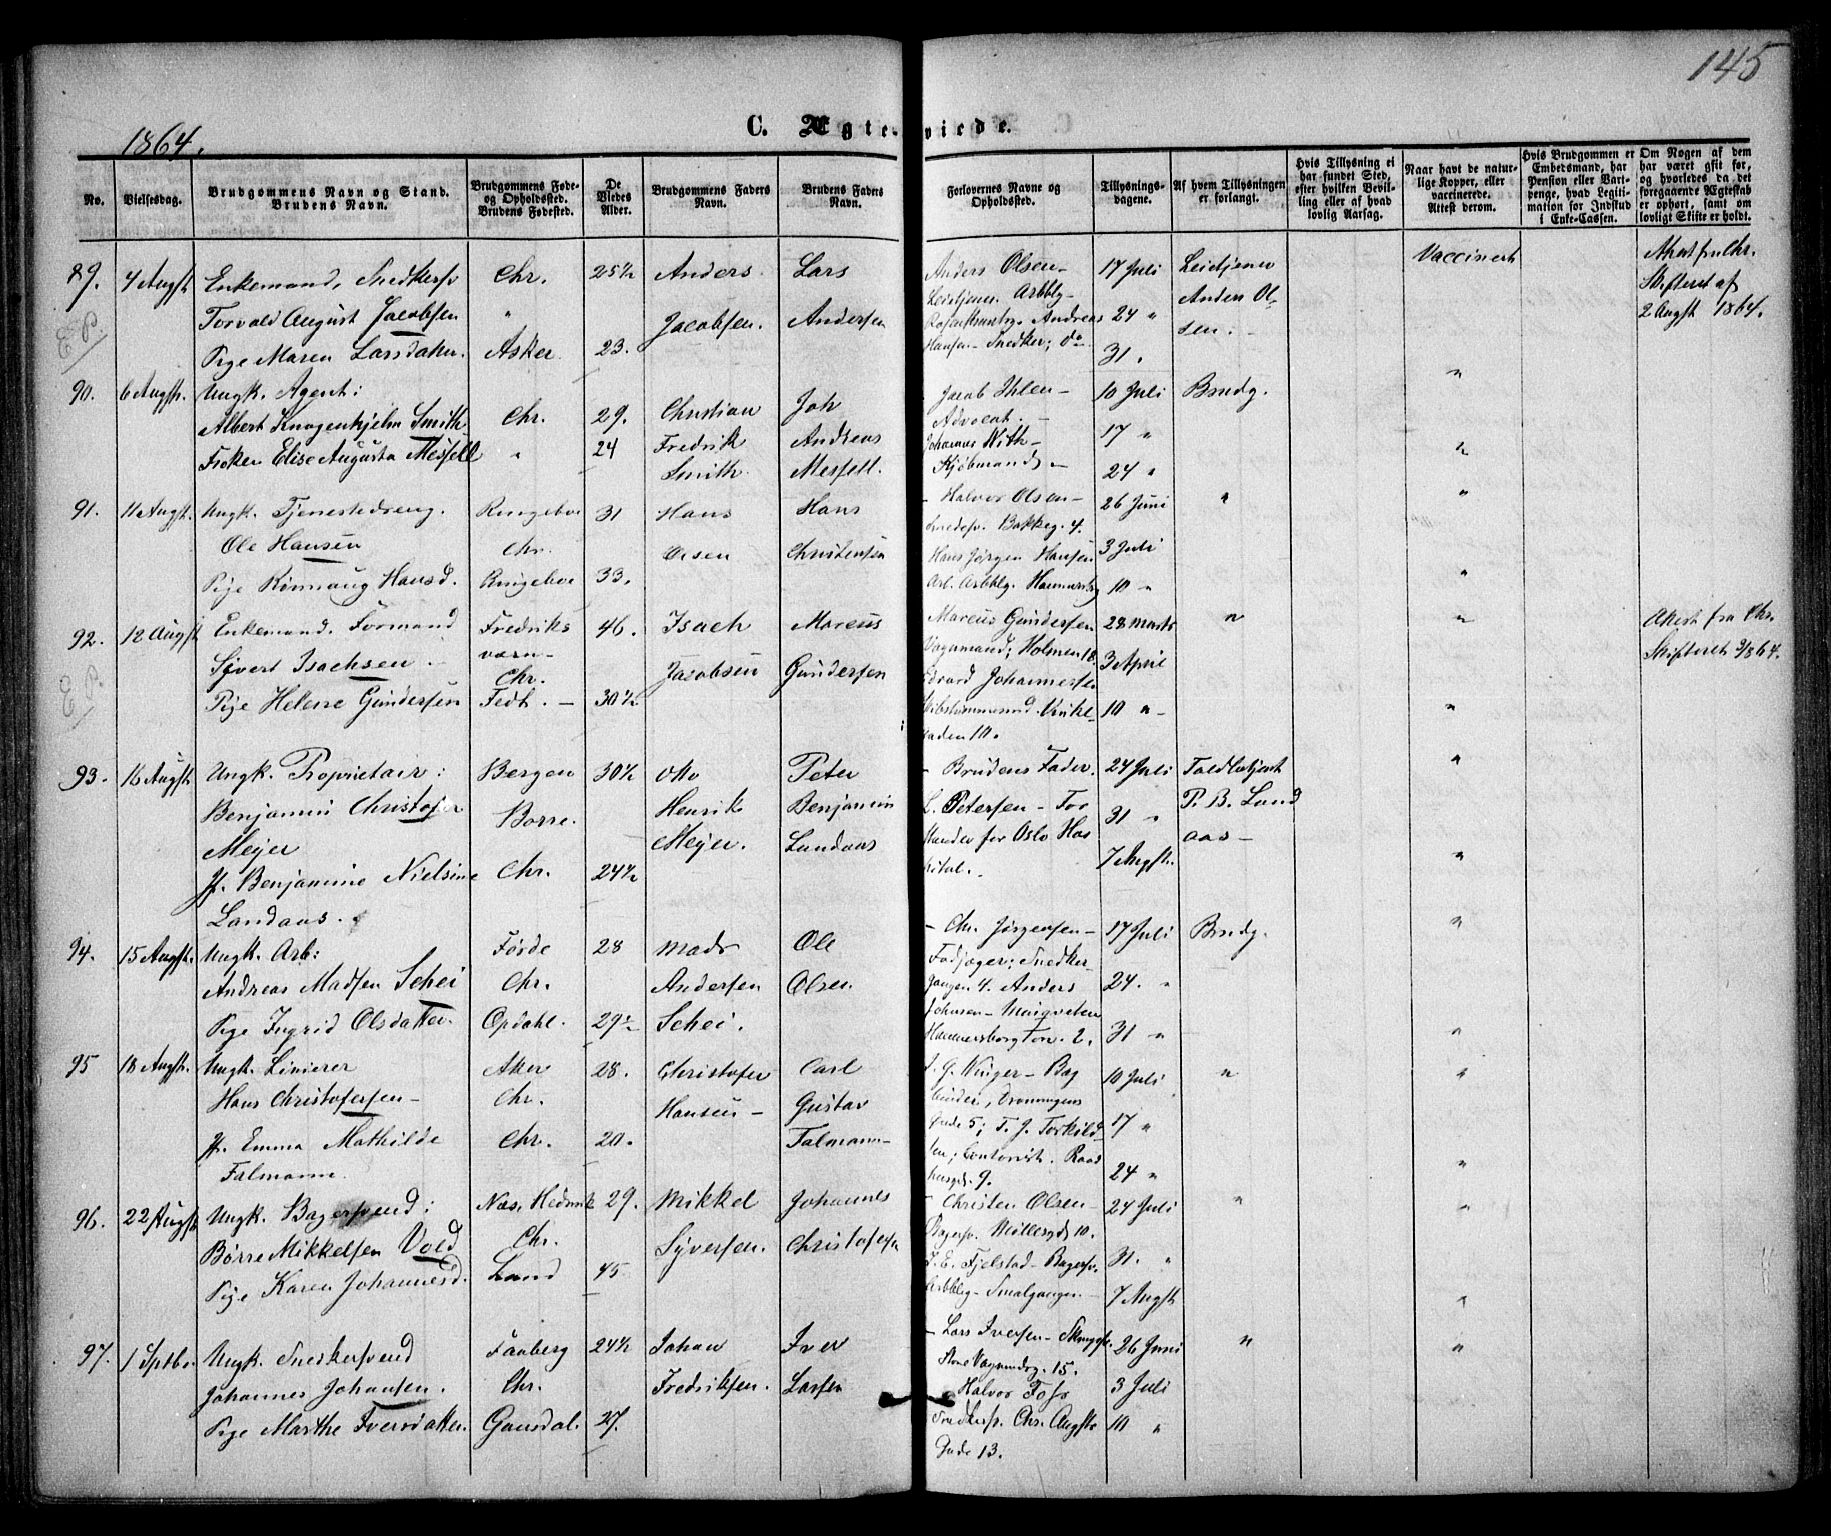 145
1864.
C. Ægteviede.
No.
Vielsesdag.
Brudgommens Navn og Stand.
Brudens Navn.
Brudgommens Føde-
og Opholdssted.
Brudens Fødested.
De
Viedes
Alder.
Brudgommens Faders
Navn.
Brudens Faders
Navn.
Forlovernes Navne og
Opholdssted.
Tillysnings-
dagene.
Af hvem Tillysningen
er forlangt.
Hvis Tillysning ei
har fundet Sted,
efter hvilken Bevil-
ling eller af hvad
lovlig Aarsag.
Naar havt de natur-
lige Kopper, eller
vaccinerede.
Attest derom.
Hvis Brudgommen er
Embedsmand, har
Pension eller Vart-
penge, hvad Legiti-
mation for Indskud
i Enke-Cassen.
Om Nogen af dem
har været gift for,
og hvorledes da det
foregaaende Ægteskab
er ophørt, samt om
lovligt Skifte er holdt.
89. 4 Augst Enkemand, Snedkersv Chr. 25½ Anders Lars Anders Olsen- 17 Juli Vaccineret
Torvald August Jacobsen " Jacobsen. Andersen 24 " Anders Ol-
sen.
Pige Maren Larsdatter. Asker 23. Hansen- Snedker; do 31.
Skifteret af
2 Augst 1864.
E P.
90. 6 Augst. Ungk. Agent: Jacob Ihlen- 10 Juli Brudg. "
Albert Smith Chr. 29. Christian Joh Advocat.- 17 "
Frøken Elise Augusta Mesfell " 24 Fredrik Andreas Johannes With- "
Smith. Mesfell. Kjøbmand, - 24 "
91. 11 Augst. Ungk. Tjenestedreng. Ringeboe 31 Hans Hans - Halvor Olsen- 26 Juni " "
Ole Hansen Chr. Olsen Christensen Bakkeg. 4. 3 Juli
Pige Rønnaug Hansd. Ringeboe 33. Hans Jørgen Hansen 10 " "
Arb. Arbblg.
92. 12 Augst Enkemand. Formand Fredriks 46. Isach Marcus Marcus Gundersen 28 Marts " " Attest fra Chr.
Syvert Isachsen værn- Jacobsen Gundersen Vognmand; Holmen 18. 3 April Skifteret 2/8 64.
Chr.
Pige Helene Gundersen - 30½ Edvard Johannesen 10 " - "
gaden 111.
E P.
93. 16 Augst. Ungk. Proprietair: Bergen 30½ Otto Peter - Brudens Fader. 24 Juli "
Benjamin Christofer Borre. Henrik Benjamin L. Petersen- For 31 " P. B. Land
Meyer Meyer. Landaas stander for Oslo Hos aas-
Jf. Benjamine Nielsine Chr. 24½ pital.- 7 Augst. "
Landaas.
94. 15 Augst. Ungk. Arb: Førde 28 Mads Ole - Chr. Jørgensen- 17 Juli Brudg. "
Andreas Madsen Schei Chr. Andersen Olsen Snedker- 24. "
Pige Ingrid Olsdatter. Opdahl. 29½ Schei. gangen 4. Anders
Johnsen-
Hammersborg Torv. 2. 31 " "
95 18 Augst. Ungk. Linierer Aker 28. Christofer Carl J. G. Winger- Bog 10 Juli " "
Hans Christofersen- Chr. Hansen- Gustav binder, Dronningens
Jf. Emma Mathilde Chr. 20. Falmann- Gade 5; T. J. Torkild 17 "
Falmann. sen; Contorist. Raad
husgd. 9. 24 " "
96. 22 Augst Ungk. Bagersvend: Næs, Hedmk 29. Mikkel Johannes - Christen Olsen- 24 Juli " "
Børre Mikkelsen Vold Chr. Syversen. Christofersn Bagersv. Møllergd 10.
Pige Karen Johannesd. Land 45 J. E. Fjelstad- Bagersv. 31. "
Arbblg- Smalgangen- 7 Augst "
97. 1 Sptbr. Ungk. Snedkersvend Faaberg 24½ Johan Iver - Lars Iversen- 26 Juni " "
Johannes Johansen. Chr. Fredriksen. Larsen Store Vognmdsg. 15. 3 Juli
Halvor Foss
Pige Marthe Iversdatter. Gausdal. 27. Snedkersv. Chr. Augsts 10 "
Gade 13.